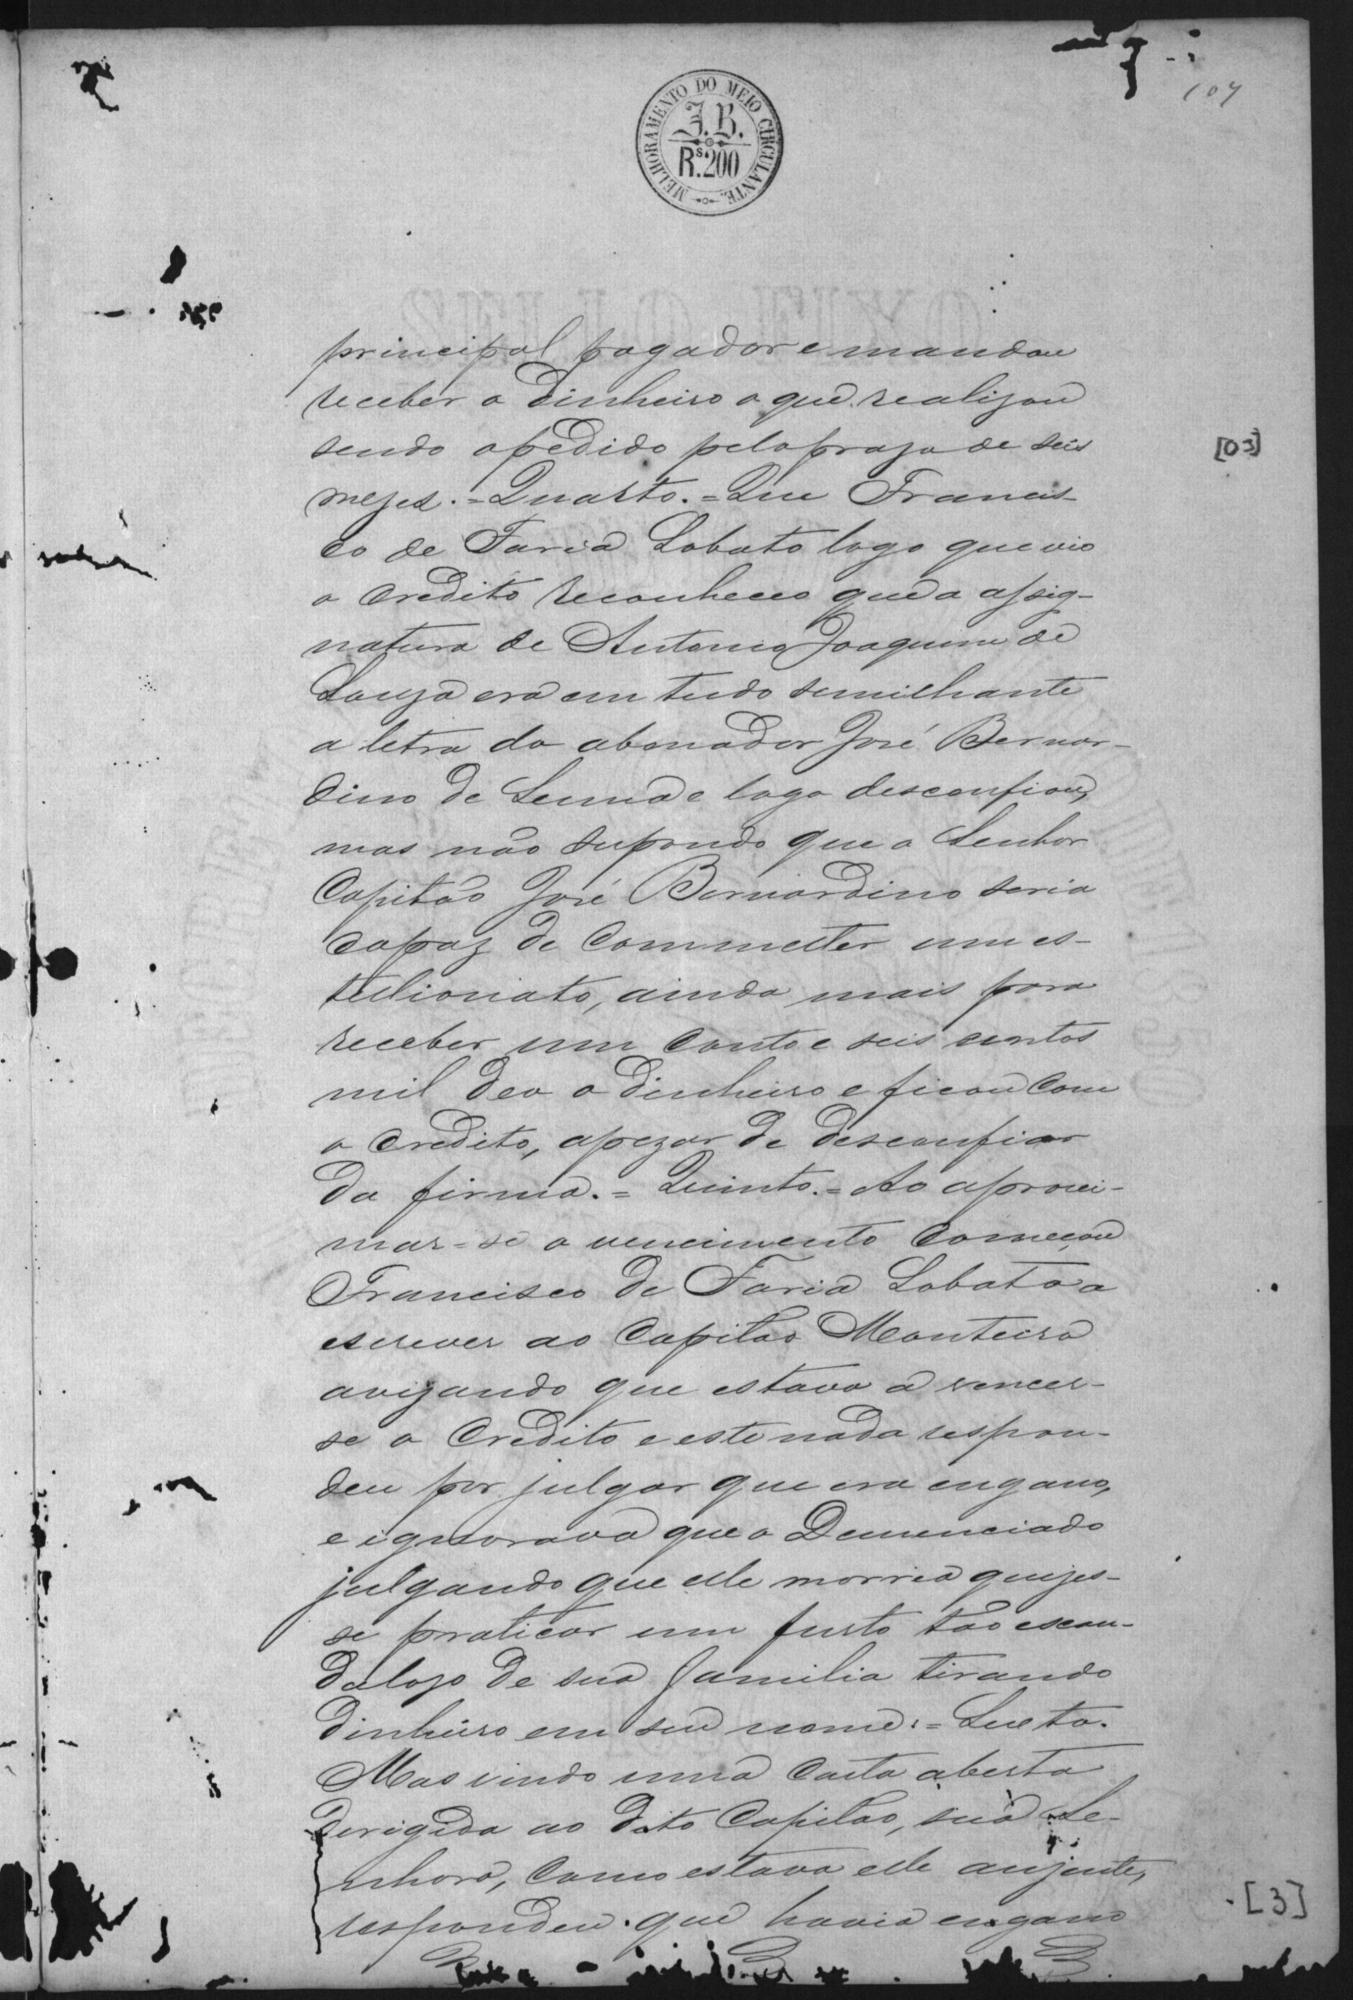 107
MELHORAMENTO DO MEIO CIRCULANTE.
J. B.
Rs. 200
principal pagador e mandou
receber o dinheiro o que realizou
sendo o pedido pelo prazo de seis
mezes. = Quarto. = Que Francis-
co de Faria Lobato logo que vio
o credito reconheceo que a assig-
natura de Antonio Joaquim de
Souza era em tudo semilhante
a letra do abonador José Bernar-
dino de Senna e logo desconfiou,
mas não supondo que o Senhor
Capitão José Bernardino seria
capaz de commetter um es-
telionato, ainda mais para
receber um conto e seis centos
mil deo o dinheiro e ficou com
o credito, apezar de desconfiar
da firma. = Quinto. = Ao aproxi-
mar-se o vencimento começou
Francisco de Faria Lobato a
escrever ao Capitão Monteiro
avizando que estava a vencer-
se o credito e este nada respon-
deu por julgar que era engano,
e ignorava que o Denunciado
julgando que elle morria quizes-
se praticar um furto tão escan-
dalozo de sua familia tirando
dinheiro em seu nome: = Sexto.
Mas vindo uma carta aberta
derigida ao dito Capitão, sua Se-
nhora, como estava elle auzente,
respondeu que havia engano
[03]
[3]